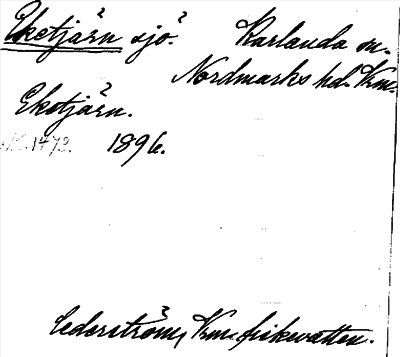 Eketjärn sjö. Karlanda sn.
Nordmarks hd. Krm.
Eketjärn.
1473. 1896.
Cederström, Krm. fiskevatten.